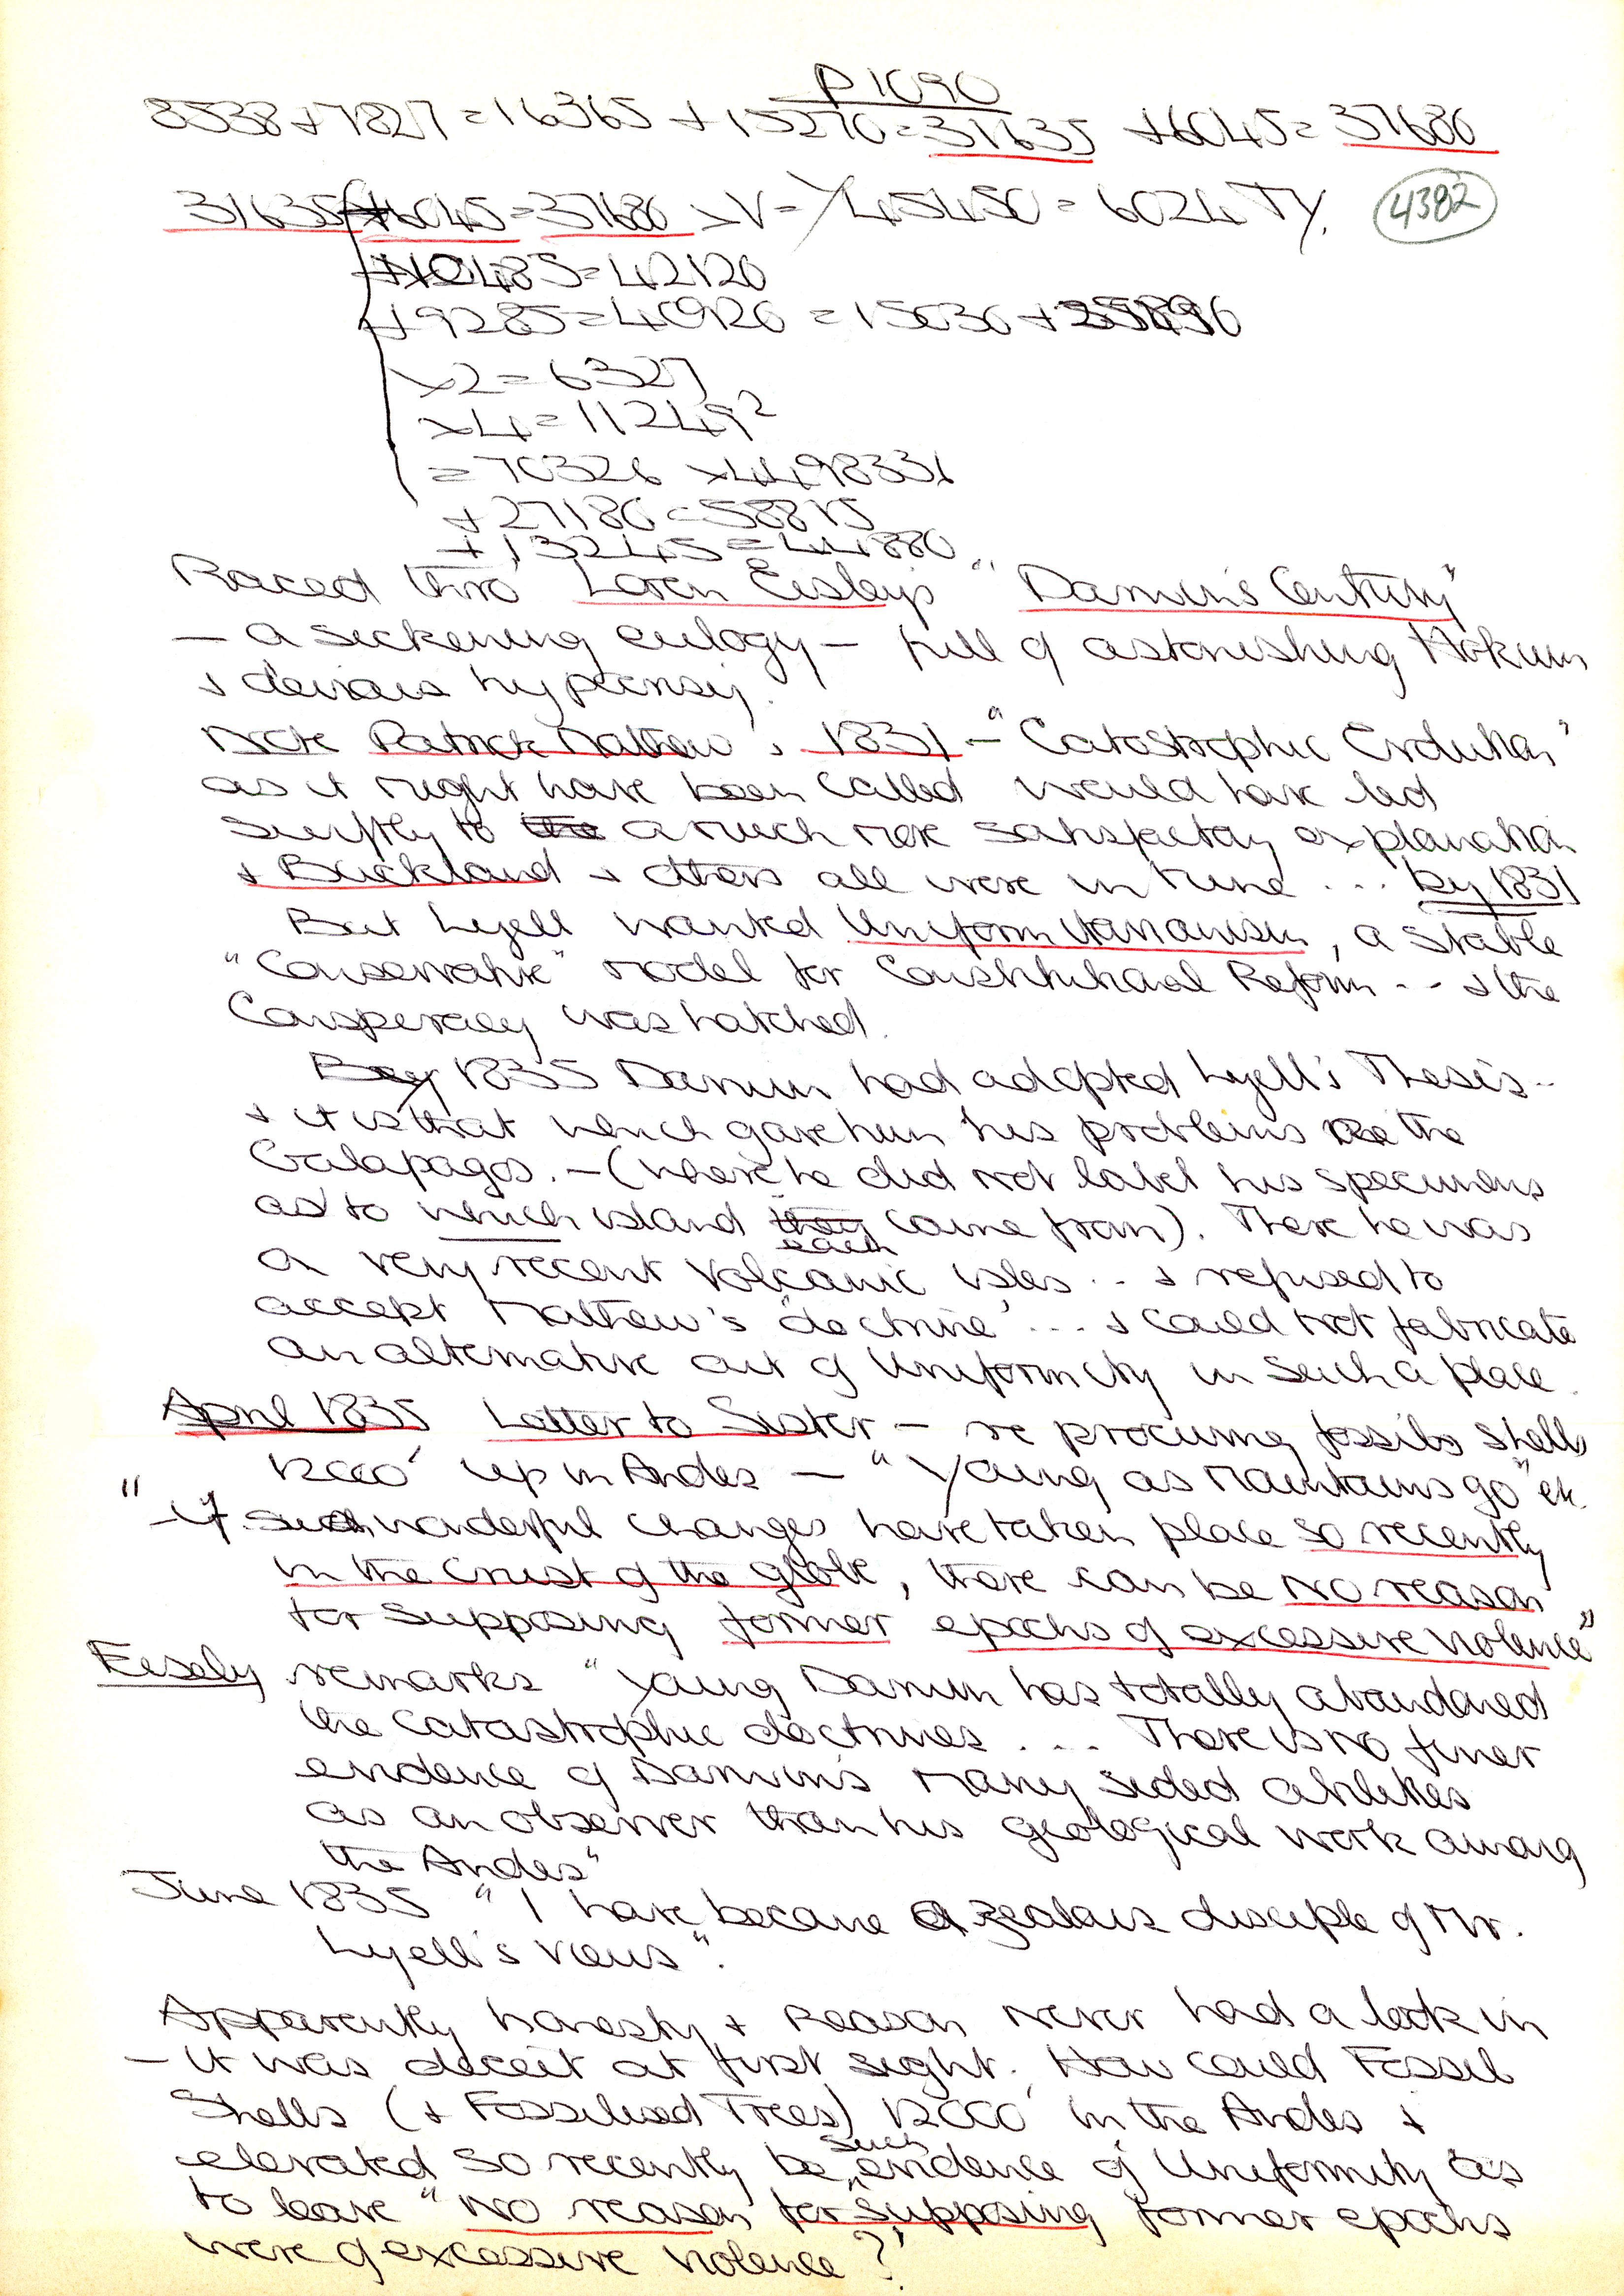 P 1090
8538 + 7827 = 16365 + 15270 = 31635 + 6045 = 37680
31635 + 6045 = 37680 = 6024 TY.
4382
+ 10485 = 42120
+ 9285 = 40920 = 15030 +
x2 = 6327
x4 = 11249²
= 70326
+ 27180 = 58815
+ 13245 = 44880
Raced thro' Loren Eisley's "Darwin's Century"
- a sickening eulogy - full of astonishing Hokum
& devious hypocrisy.
Note Patrick Matthew's 1831 - "Catastrophic Evolution"
as it might have been called would have led
swiftly to the a much more satisfactory explanation
& Buckland & others all were in tune ... by 1831
But Lyell wanted Uniformitarianism, a stable
"Conservative" model for Constitutional Reform -- & the
Conspiracy was hatched.
By 1835 Darwin had adopted Lyell's Thesis --
& it is that which gave him his problems the
Galapagos. - (where he did not label his specimens
as to which island they each came from). There he was
on very recent Volcanic Isles .. & refused to
accept Matthew's "doctrine" ... & could not fabricate
an alternative out of Uniformity in such a place.
April 1835 Letter to Sister - re procuring fossil shells
12000' up in Andes - "Young as Mountains go" etc.
"- if such wonderful changes have taken place so recently
in the crust of the globe, there can be no reason
for supposing former epochs of excessive violence"
Eisely remarks "Young Darwin has totally abandoned
the catastrophic doctrines .... There is no finer
evidence of Darwin's many sided abilities
as an observer than his geological work among
the Andes"
June 1835 "I have become a zealous disciple of Mr.
Lyell's views".
Apparently honesty & Reason never had a look in
- it was deceit at first sight. How could Fossil
Shells (& Fossilised Trees) 12000' in the Andes &
elevated so recently be such evidence of Uniformity as
to leave "no reason for supposing former epochs
were of excessive violence?"